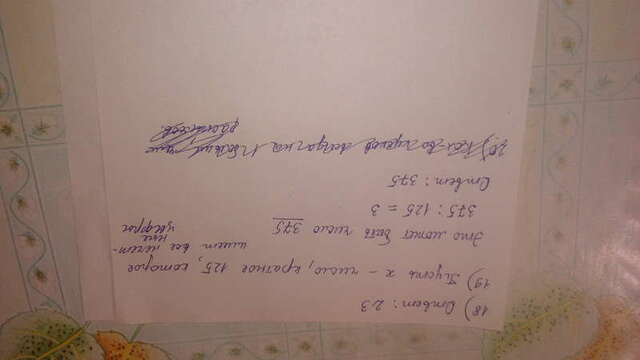 18) Ответ: 23
19) Пусть x - число, кратное 125, которое
имеет все нечет-
ные цифры
Это может быть число 375
375 : 125 = 3
Ответ: 375
20)